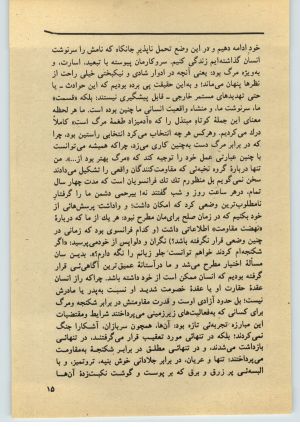 خود ادامه دهیم و در این وضع تحمل ناپذیر جانکاه که نامش را سرنوشت
انسان گذاشته‌ایم زندگی کنیم. سروکارمان پیوسته با تبعید، اسارت، و
به‌ویژه مرگ بود: یعنی آنچه در ادوار شادی و نیکبختی خیلی راحت از
نظرها پنهان می‌ماند؛ و به این حقیقت پی برده بودیم که این حوادث ـ یا
حتی تهدیدهای مستمر خارجی ـ قابل پیشگیری نیستند؛ بلکه «قسمت»
ما، سرنوشت ما، و منشاء واقعیت انسانی ما چنین بوده است. ما هر لحظه
معنای این جملهٔ کوتاه مبتذل را که «آدمیزاد طعمهٔ مرگ است» کاملاً
درک می‌کردیم. وهرکس هر چه انتخاب می‌کرد انتخابی راستین بود، چرا
که در برابر مرگ دست به‌چنین کاری می‌زد، چراکه همیشه می‌توانست
با چنین عبارتی عمل خود را توجیه کند که «مرگ بهتر بود از...». من
تنها دربارهٔ گروه نخبه‌ئی که مقاومت‌کنندگان واقعی را تشکیل می‌دادند
سخن نمی‌گویم بل منظورم تک تک فرانسویان است که مدت چهار سال
تمام، درهر ساعت روز و شب گفتند نه! بیرحمی دشمن ما را گرفتار
نامطلوب‌ترین وضعی کرد که امکان داشت؛ و واداشت پرسش‌هائی از
خود بکنیم که در زمان صلح برای‌مان مطرح نبود: هر یک از ما که دربارهٔ
«نهضت مقاومت» اطلاعاتی داشت (و کدام فرانسوی بود که زمانی در
چنین وضعی قرار نگرفته باشد؟) نگران و دلواپس از خودمی‌پرسید: «اگر
شکنجه‌ام کردند خواهم توانست جلو زبانم را نگه دارم؟». بدین سان
مسألهٔ اختیار مطرح می‌شد و ما درآستانهٔ عمیق‌ترین آگاهی‌ئی قرار
گرفته بودیم که انسان ممکن است از خود داشته باشد. چراکه راز انسان
عقدهٔ حقارت او یا عقدهٔ خصومت شدید او نسبت به‌پدر یا مادرش
نیست؛ بل حدود آزادی اوست و قدرت مقاومتش در برابر شکنجه ومرگ
برای کسانی که به‌فعالیت‌های زیرزمینی می‌پرداختند شرایط ومقتضیات
این مبارزه تجربه‌ئی تازه بود: آن‌ها، همچون سربازان، آشکارا جنگ
نمی‌کردند؛ بلکه در تنهائی مورد تعقیب قرار می‌گرفتند، در تنهائی
بازداشت می‌شدند، و در تنهائی مطلق در برابر شکنجه به‌مقاومت
می‌پرداختند: تنها و عریان، در برابر جلادانی خوش بنیه، تروتمیز، و با
البسه‌ئی پر زرق و برق که بر پوست و گوشت نکبت‌زدهٔ آن‌ها
۱۵